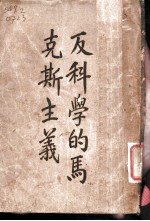 反科學的馬
克斯主義